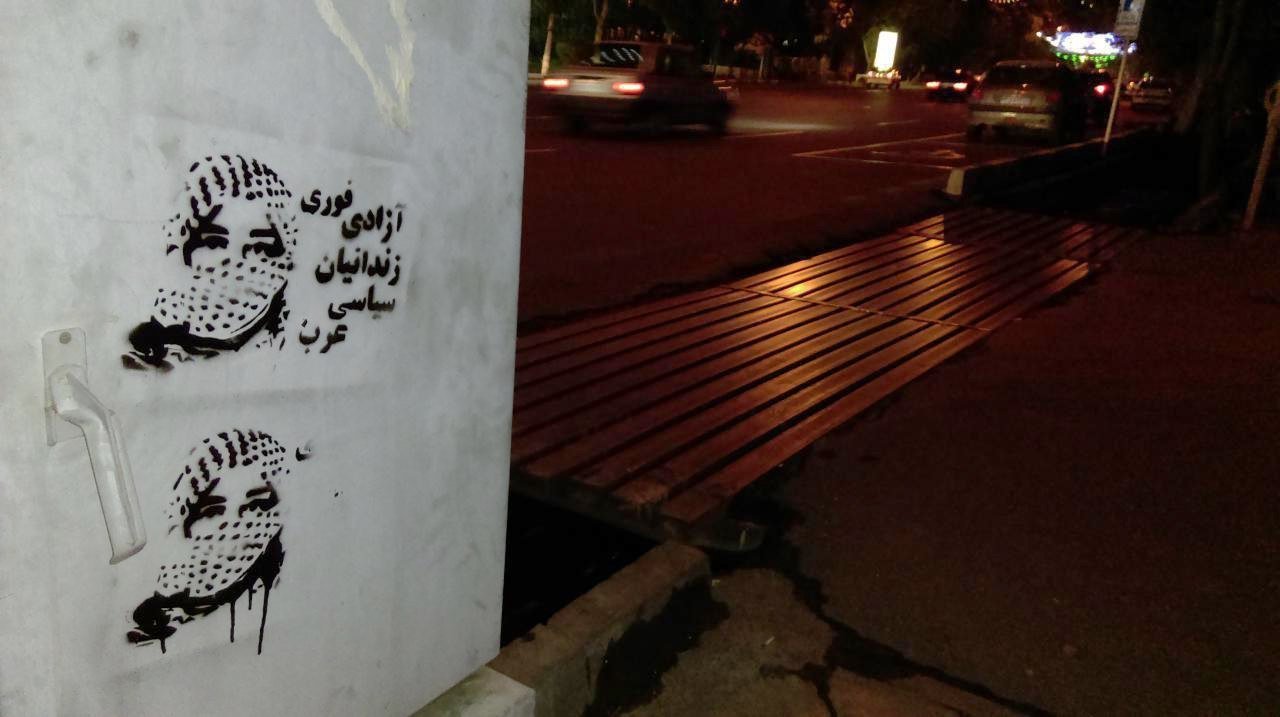 فوری
آزادی
زندانیان
سیاسی
عرب